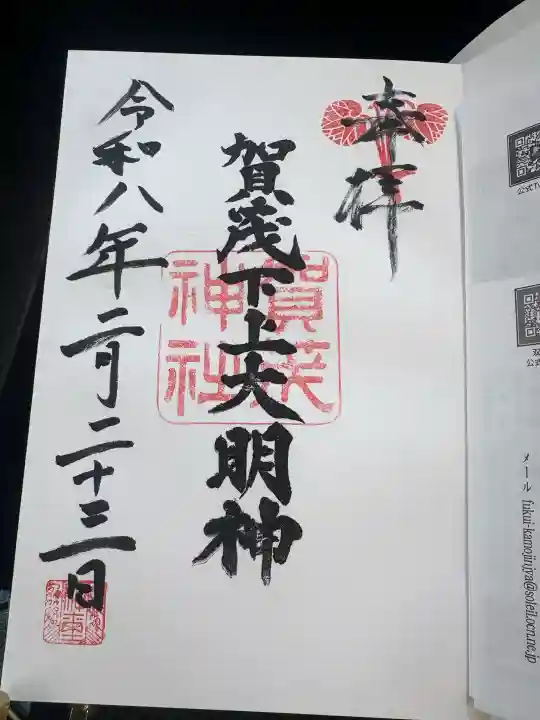 奉拝
賀茂下上大明神
賀茂
神社
令和八年二月二十三日
公式
公式
メール fukui-kamojinjya@soleil.ocn.ne.jp